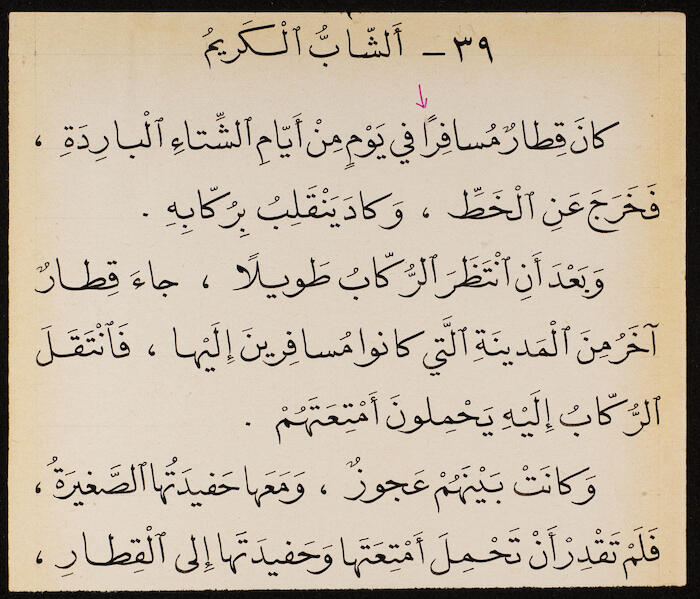 ٣٩ – أَلشّابُّ ٱلْكَريمُ
كانَ قِطارٌ مُسافِرًا في يَوْمٍ مِنْ أَيّامِ ٱلشِّتاءِ ٱلْبارِدَةِ ،
فَخَرَجَ عَنِ ٱلْخَطِّ ، وَكادَ يَنْقَلِبُ بِرُكّابِهِ .
وَبَعْدَ أَنِ ٱنْتَظَرَ ٱلرُّكّابُ طَويلًا ، جاءَ قِطارٌ
آخَرُ مِنَ ٱلْمَدينَةِ ٱلَّتي كانوا مُسافِرينَ إِلَيْها ، فَٱنْتَقَلَ
ٱلرُّكّابُ إِلَيْهِ يَحْمِلونَ أَمْتِعَتَهُمْ .
وَكانَتْ بَيْنَهُمْ عَجوزٌ ، وَمَعَها حَفيدَتُها ٱلصَّغيرَةُ ،
فَلَمْ تَقْدِرْ أَنْ تَحْمِلَ أَمْتِعَتَها وَحَفيدَتَها إِلى ٱلْقِطارِ ،